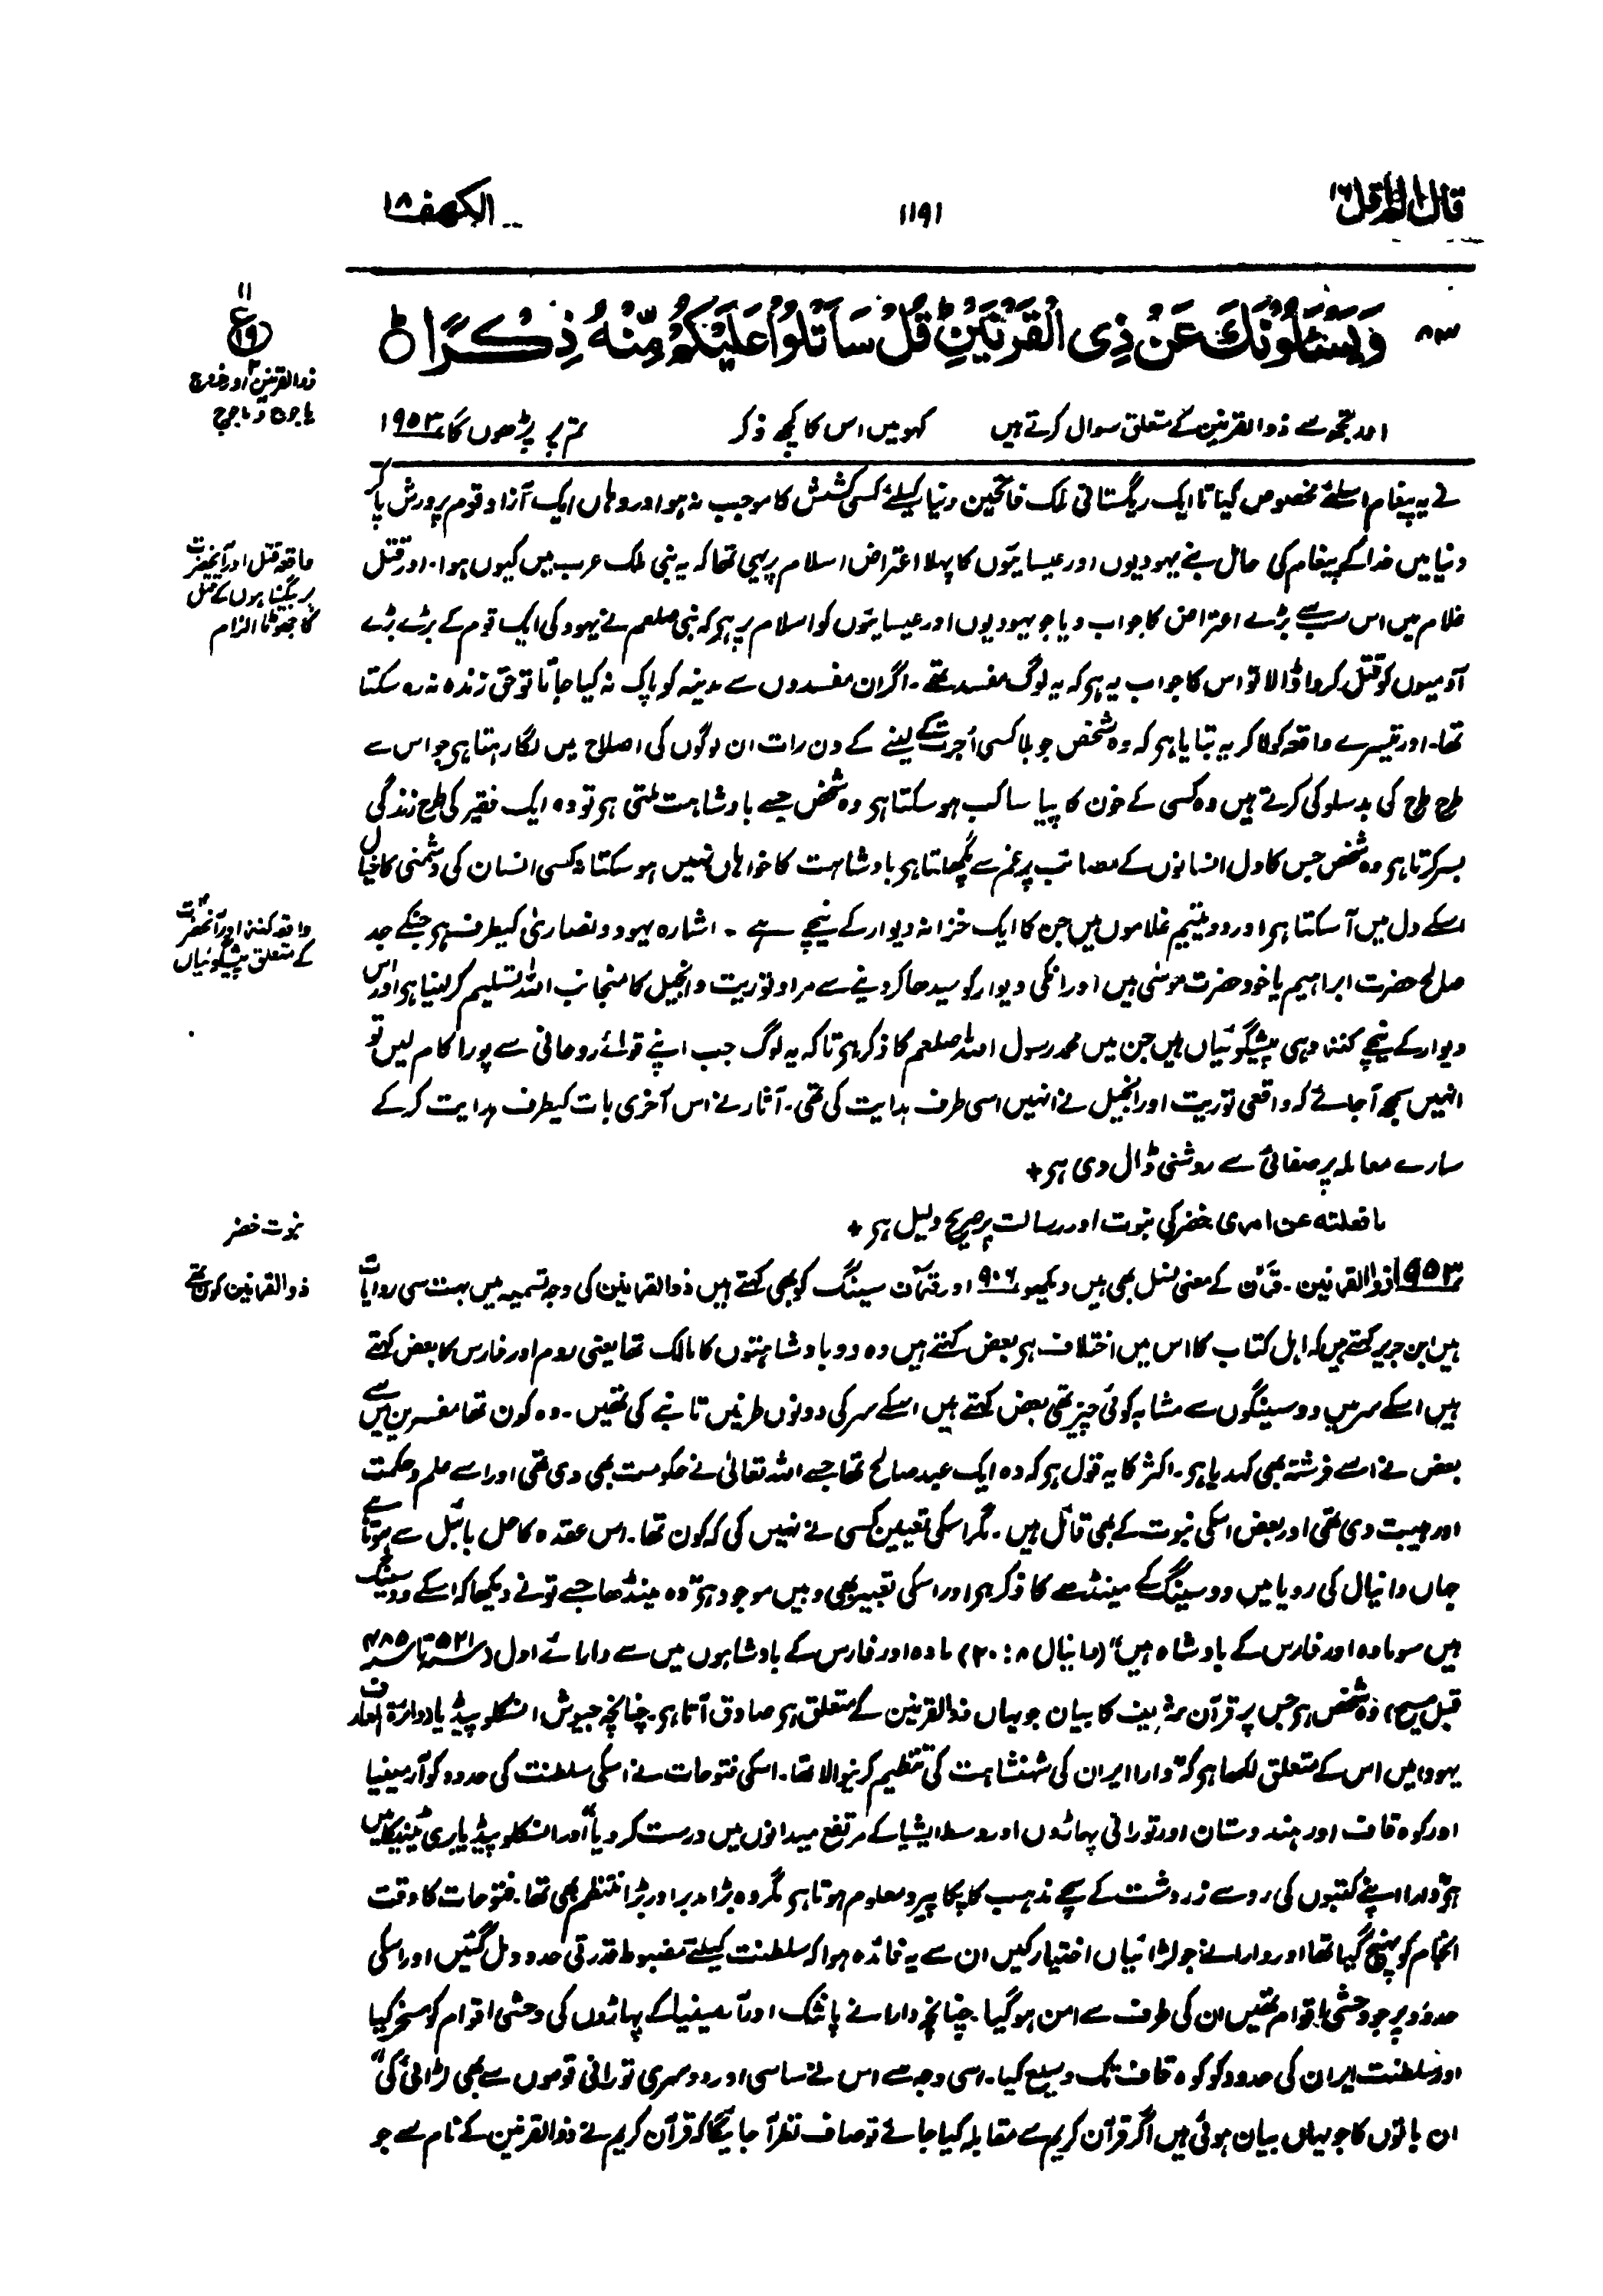 قال الم اقل ١٦
١١٩١
الکھف ١٨
٨٣ وَيَسْـَٔلُوْنَكَ عَنْ ذِى الْقَرْنَيْنِ ؕ قُلْ سَاَتْلُوْا عَلَيْكُمْ مِّنْهُ ذِكْرًا ؕ○
اور تجھ سے ذوالقرنین کے متعلق سوال کرتے ہیں کہو میں اس کا کچھ ذکر تم پر پڑھوں گا ١٩٥٣
ذوالقرنین اور خروج
یاجوج و ماجوج
نے یہ پیغام اسلئے مخصوص کیا تا ایک ریگستانی ملک فاتحین دنیا کیلئے کسی کشش کا موجب نہ ہو اور وہاں ایک آزاد قوم پرورش پا کر
دنیا میں خدا کے پیغام کی حامل بنے یہودیوں اور عیسائیوں کا پہلا اعتراض اسلام پر یہی تھا کہ یہ نبی ملک عرب میں کیوں ہوا۔ اور قتل
غلام میں اس سب سے بڑے اعتراض کا جواب دیا جو یہودیوں اور عیسائیوں کو اسلام پر ہے کہ نبی صلعم نے یہود کی ایک قوم کے بڑے بڑے
آدمیوں کو قتل کروا ڈالا تو اس کا جواب یہ ہے کہ یہ لوگ مفسد تھے۔ اگر ان مفسدوں سے مدینہ کو پاک نہ کیا جاتا تو حق زندہ نہ رہ سکتا
تھا۔ اور تیسرے واقعہ کو لا کر یہ بتایا ہے کہ وہ شخص جو بلا کسی اُجرت کے لینے کے دن رات ان لوگوں کی اصلاح میں لگا رہتا ہے جو اس سے
طرح طرح کی بدسلوکی کرتے ہیں وہ کسی کے خون کا پیاسا کب ہو سکتا ہے وہ شخص جسے بادشاہت ملتی ہے تو وہ ایک فقیر کی طرح زندگی
بسر کرتا ہے وہ شخص جس کا دل انسانوں کے مصائب پر غم سے پگھلتا ہے بادشاہت کا خواہاں نہیں ہو سکتا نہ کسی انسان کی دشمنی کا خیال
اسکے دل میں آ سکتا ہے اور دو یتیم غلاموں میں جن کا ایک خزانہ دیوار کے نیچے ہے ۔ اشارہ یہود و نصاریٰ کیطرف ہے جنکے جد
صالح حضرت ابراہیم یا خود حضرت موسٰی ہیں اور انکی دیوار کو سیدھا کر دینے سے مراد توریت و انجیل کا منجانب اللہ تسلیم کر لینا ہے اور اس
دیوار کے نیچے کنز وہی پیشگوئیاں ہیں جن میں محمد رسول اللہ صلعم کا ذکر ہے تا کہ یہ لوگ جب اپنے قوائے روحانی سے پورا کام لیں تو
انہیں سمجھ آ جائے کہ واقعی توریت اور انجیل نے انہیں اسی طرف ہدایت کی تھی۔ آثار نے اس آخری بات کیطرف ہدایت کر کے
سارے معاملہ پر صفائی سے روشنی ڈال دی ہے +
واقعہ قتل اور آنحضرت
پر بیگناہوں کے قتل
کا جھوٹا الزام
واقعہ کنز اور آنحضرت
کے متعلق پیشگوئیاں
ما فعلتہ عن امری خضر کی نبوت اور رسالت پر صریح دلیل ہے +
نبوت خضر
١٩٥٣ ذوالقرنین ۔ قرن کے معنی نسل بھی ہیں دیکھو ٩٠٦ اور قرن سینگ کو بھی کہتے ہیں ذوالقرنین کی وجہ تسمیہ میں بہت سی روایات
ذوالقرنین کون تھے
ہیں ابن جریر کہتے ہیں کہ اہل کتاب کا اس میں اختلاف ہے بعض کہتے ہیں وہ دو بادشاہتوں کا مالک تھا یعنی روم اور فارس کا بعض کہتے
ہیں اسکے سر میں دو سینگوں سے مشابہ کوئی چیز تھی بعض کہتے ہیں اسکے سر کی دونوں طرفیں تانبے کی تھیں۔ وہ کون تھا مفسرین میں سے
بعض نے اسے فرشتہ بھی کہدیا ہے۔ اکثر کا یہ قول ہے کہ وہ ایک عبد صالح تھا جسے اللہ تعالیٰ نے حکومت بھی دی تھی اور اسے علم و حکمت
اور ہیبت دی تھی اور بعض اسکی نبوت کے بھی قائل ہیں ۔ مگر اسکی تعیین کسی نے نہیں کی کہ کون تھا۔ اس عقدہ کا حل بائبل سے ہوتا ہے
جہاں دانیال کی رویا میں دو سینگ کے مینڈھے کا ذکر ہے اور اسکی تعبیر بھی وہیں موجود ہے "وہ مینڈھا جسے تو نے دیکھا کہ اسکے دو سینگ
ہیں سو مادہ اور فارس کے بادشاہ ہیں" (دانیال ٨ : ٢٠) مادہ اور فارس کے بادشاہوں میں سے دارائے اول (٥٢١ تا ٤٨٥
قبل مسیح) وہ شخص ہے جس پر قرآن شریف کا بیان جو یہاں ذوالقرنین کے متعلق ہے صادق آتا ہے۔ چنانچہ جیوئش انسکلوپیڈیا (دائرۃ المعارف
یہود) میں اس کے متعلق لکھا ہے کہ "دارا ایران کی شہنشاہت کی تنظیم کرنیوالا تھا۔ اسکی فتوحات نے اسکی سلطنت کی حدود کو آرمینیا
اور کوہ قاف اور ہندوستان اور تورانی پہاڑوں اور وسط ایشیا کے مرتفع میدانوں میں درست کر دیا" اور انسکلوپیڈیا بری ٹینیکا میں
ہے "دارا اپنے کتبوں کی رو سے زردشت کے سچے مذہب کا پکا پیرو معلوم ہوتا ہے مگر وہ بڑا مدبر اور بڑا منتظم بھی تھا۔ فتوحات کا وقت
انجام کو پہنچ گیا تھا اور دارا نے جو لڑائیاں اختیار کیں ان سے یہ فائدہ ہوا کہ سلطنت کیلئے مضبوط قدرتی حدود مل گئیں اور اسکی
حدود پر جو وحشی اقوام تھیں ان کی طرف سے امن ہو گیا۔ چنانچہ دارا نے پانٹک اور آرمینیا کے پہاڑوں کی وحشی اقوام کو مسخر کیا
اور سلطنت ایران کی حدود کو کوہ قاف تک وسیع کیا۔ اسی وجہ سے اس نے ساسی اور دوسری تورانی قوموں سے بھی لڑائی کی"
ان باتوں کا جو یہاں بیان ہوئی ہیں اگر قرآن کریم سے مقابلہ کیا جائے تو صاف نظر آ جائیگا کہ قرآن کریم نے ذوالقرنین کے نام سے جو